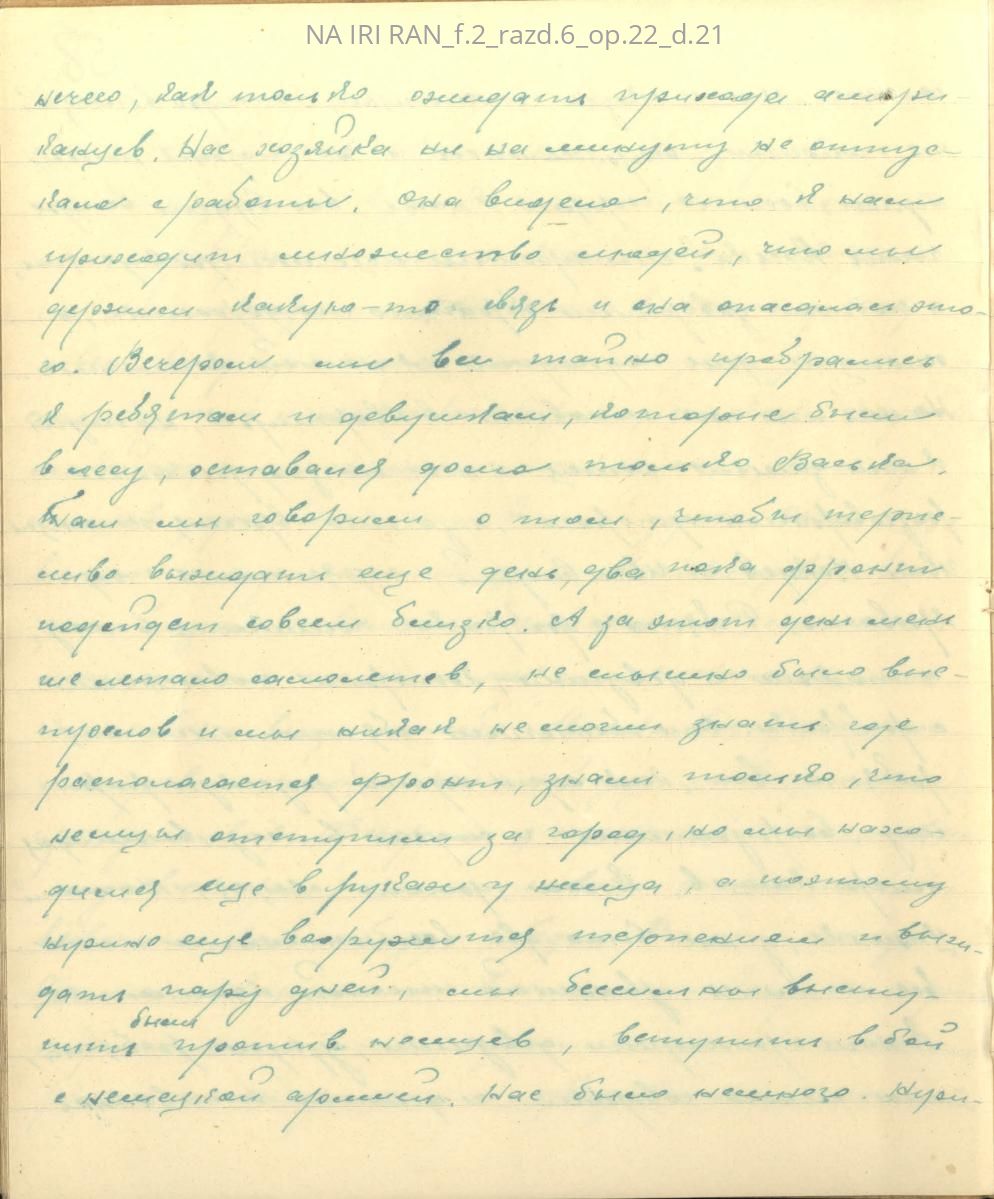 NA IRI RAN_f.2_razd.6_op.22_d.21
нечего, как только ожидать прихода амери-
канцев. Нас хозяйка ни на минуту не отпус-
кала с работы. Она видела, что к нам
приходит множество людей, что мы
держим какую-то связь и она опасалась это-
го. Вечером мы все тайно пробрались
к ребятам и девушкам, которые были
в лесу, оставался дома только Васька.
Там мы говорили о том, чтобы терпе-
ливо выждать еще день, два пока фронт
подойдет совсем близко. А за этот день мень
ше летало самолетов, не слышно было выс-
трелов и мы никак не могли знать где
располагается фронт, знали только, что
немцы отступили за город, но мы нахо-
димся еще в руках у немца, а поэтому
нужно еще вооружится терпением и выжи-
дать пару дней, мы бессильны высту-
были
пить против немцев, вступить в бой
с немецкой армией. Нас было немного. Нуж-